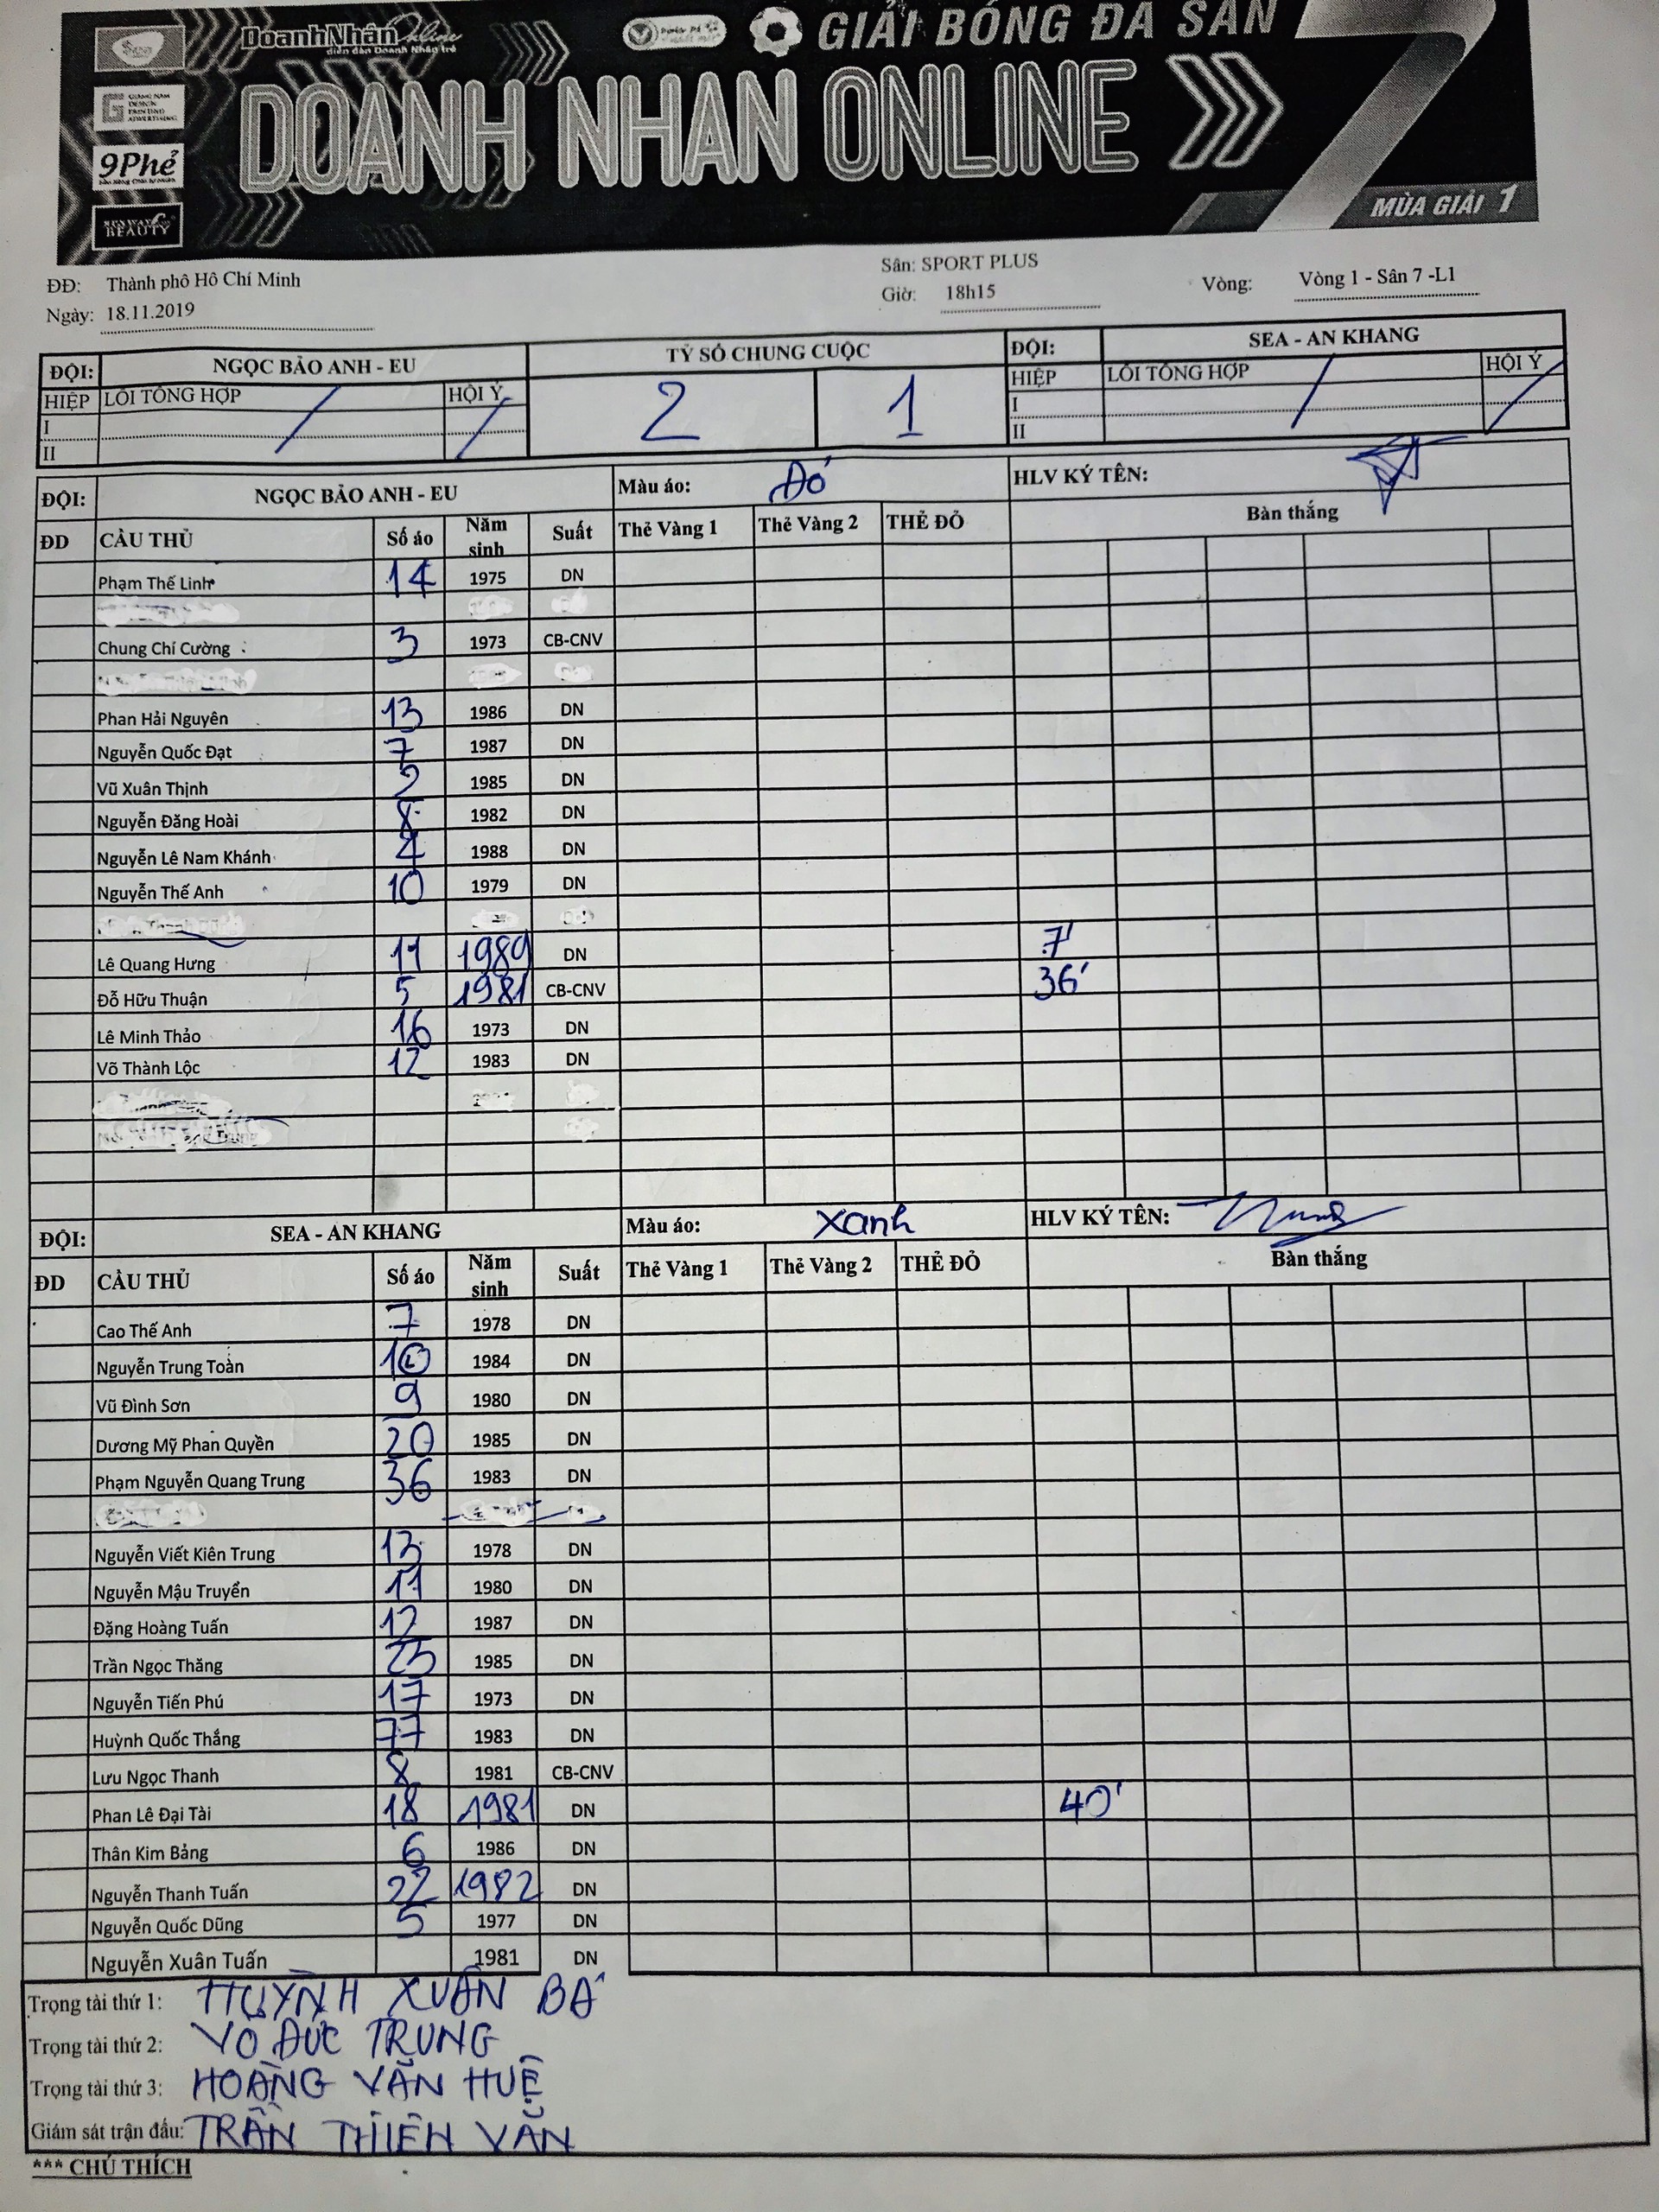 DoanhNhân Online
diễn đàn Doanh Nhân trẻ
GIẢI BÓNG ĐÁ SÂN 7
GIANG NAM
DESIGN
PRINTING
ADVERTISING
DOANH NHAN ONLINE
9Phẻ
BEAUTY
MÙA GIẢI 1
ĐĐ: Thành phô Hô Chí Minh Sân: SPORT PLUS
Ngày: 18.11.2019 Giờ: 18h15 Vòng: Vòng 1 - Sân 7 -L1
ĐỘI: NGỌC BẢO ANH - EU TỶ SỐ CHUNG CUỘC ĐỘI: SEA - AN KHANG
HIỆP LỖI TỔNG HỢP HỘI Ý 2 1 HIỆP LỖI TỔNG HỢP HỘI Ý
I I
II II
ĐỘI: NGỌC BẢO ANH - EU Màu áo: Đỏ HLV KÝ TÊN:
ĐD CẦU THỦ Số áo Năm sinh Suất Thẻ Vàng 1 Thẻ Vàng 2 THẺ ĐỎ Bàn thắng
Phạm Thế Linh 14 1975 DN
Chung Chí Cường 3 1973 CB-CNV
Phan Hải Nguyên 13 1986 DN
Nguyễn Quốc Đạt 7 1987 DN
Vũ Xuân Thịnh 2 1985 DN
Nguyễn Đăng Hoài 8 1982 DN
Nguyễn Lê Nam Khánh 4 1988 DN
Nguyễn Thế Anh 10 1979 DN
Lê Quang Hưng 11 1989 DN 7'
Đỗ Hữu Thuận 5 1981 CB-CNV 36'
Lê Minh Thảo 16 1973 DN
Võ Thành Lộc 12 1983 DN
ĐỘI: SEA - AN KHANG Màu áo: Xanh HLV KÝ TÊN:
ĐD CẦU THỦ Số áo Năm sinh Suất Thẻ Vàng 1 Thẻ Vàng 2 THẺ ĐỎ Bàn thắng
Cao Thế Anh 7 1978 DN
Nguyễn Trung Toàn 10 1984 DN
Vũ Đình Sơn 9 1980 DN
Dương Mỹ Phan Quyền 20 1985 DN
Phạm Nguyễn Quang Trung 36 1983 DN
Nguyễn Viết Kiên Trung 13 1978 DN
Nguyễn Mậu Truyển 11 1980 DN
Đặng Hoàng Tuấn 12 1987 DN
Trần Ngọc Thăng 23 1985 DN
Nguyễn Tiến Phú 17 1973 DN
Huỳnh Quốc Thắng 77 1983 DN
Lưu Ngọc Thanh 8 1981 CB-CNV
Phan Lê Đại Tài 18 1981 DN 40'
Thân Kim Bảng 6 1986 DN
Nguyễn Thanh Tuấn 22 1982 DN
Nguyễn Quốc Dũng 5 1977 DN
Nguyễn Xuân Tuấn 1981 DN
Trọng tài thứ 1: HUỲNH XUÂN BÁ
Trọng tài thứ 2: VÕ ĐỨC TRUNG
Trọng tài thứ 3: HOÀNG VĂN HUỆ
Giám sát trận đấu: TRẦN THIÊN VĂN
*** CHÚ THÍCH